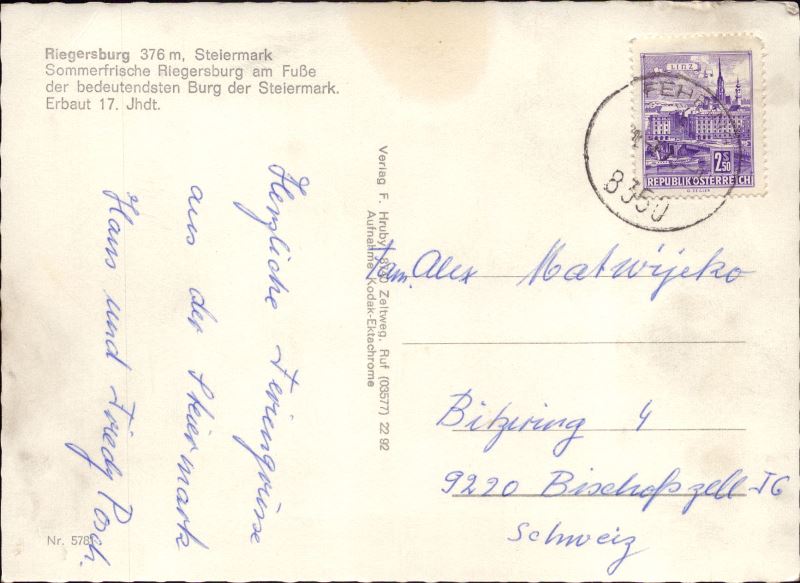 Riegersburg 376 m, Steiermark
Sommerfrische Riegersburg am Fuße
der bedeutendsten Burg der Steiermark.
Erbaut 17. Jhdt.
Herzliche Feriengrüsse
aus der Steiermark
Hans und Friedy Posch.
Nr. 578
Verlag F. Hruby, 8740 Zeltweg. Ruf (03577) 22 92
Aufnahme: Kodak-Ektachrome
LINZ
2.50 S
REPUBLIK ÖSTERREICH
FEH
8350
Fam. Alex Matwijeko
Bitziring 4
9220 Bischofszell TG
Schweiz